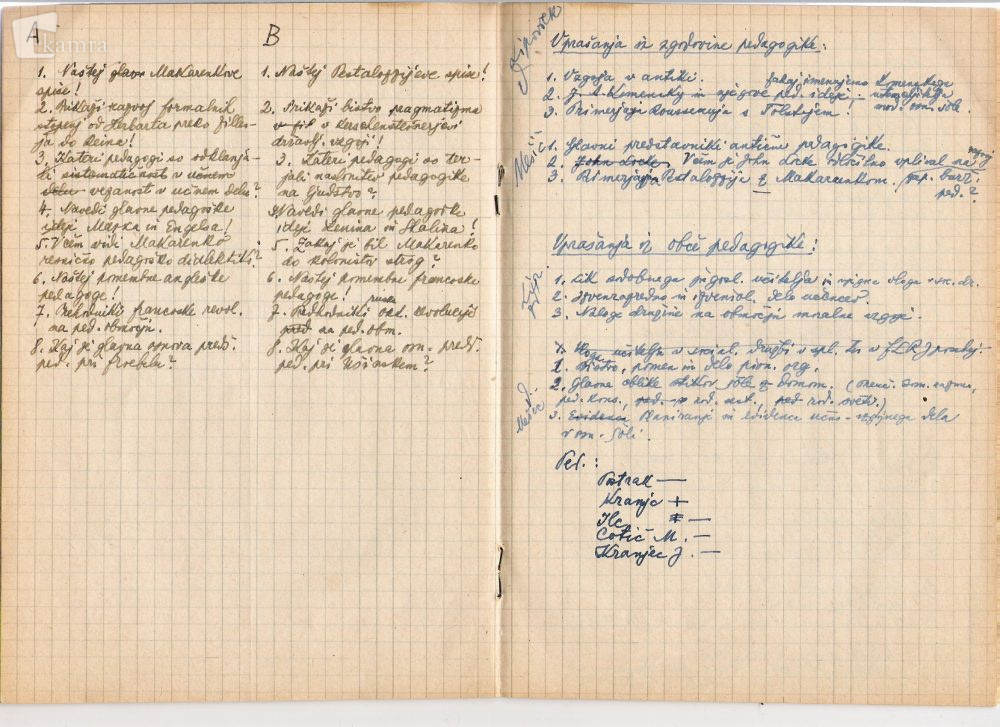 kamra
A
1. Naštej glavne Makarenkove
spise!
2. Prikaži razvoj formalnih
stopenj od Herbarta preko Ziller-
ja do Reina!
3. Kateri pedagogi so odklanja-
li sistematičnost v učnem
vezanost v učnem delu?
4. Navedi glavne pedagoške
ideje Marxa in Engelsa!
5. V čem vidi Makarenko
resnično pedagoško dialektiko?
6. Naštej pomembne angleške
pedagoge!
7. Predhodniki francoske revol.
na ped. območju.
8. Kaj je glavna osnova predš.
ped. pri Froeblu?
B
1. Naštej Pestalozzijeve spise!
2. Prikaži bistvo pragmatizma
v Kerschensteinerjevi
državlj. vzgoji!
3. Kateri pedagogi so ter-
jali naslonitev pedagogike
na ljudstvo?
4. Navedi glavne pedagoške
ideje Lenina in Stalina!
5. Zakaj je bil Makarenko
do kolonistov strog?
6. Naštej pomembne francoske
pedagoge!
7. Predhodniki ruske okt. revolucije
na ped. obm.
8. Kaj je glavna osn. predš.
ped. pri Ušinskem?
Vprašanja iz zgodovine pedagogike:
1. Vzgoja v antiki.
2. J. A. Komensky in njegove ped. ideje; zakaj imenujemo Komenskega utemeljitelja
mod. osn. šole.
3. Primerjaj Rousseauja s Tolstojem.
1. Glavni predstavniki antične pedagogike.
2. John Locke V čem je John Locke odločilno vplival na
3. Primerjaj Pestalozzija z Makarenkom. burž.
ped.?
Vprašanja iz obče pedagogike:
1. Lik sodobnega jugosl. učitelja in njegova vloga v soc. dr.
2. Izvenrazredno in izvenšol. delo učencev.
3. Naloge družine na območju moralne vzgoje.
1. Vloga učitelja v social. družbi v spl. in v FLRJ posebej.
1. Bistvo, pomen in delo pion. org.
2. Glavne oblike stikov šole z domom.
ped. kons., rod. sest., rod. svet.)
3. Evidenca Planiranje in evidenca učno-vzgojnega dela
v osn. šoli.
Ped.:
Postrak —
Kranjc +
Ilc —
Cotič M. —
Kranjec J. —